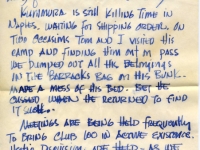 KURIMURA IS STILL KILLING TIME IN
NAPLES, WAITING FOR SHIPPING ORDERS, ON
TWO OCCASIONS TOM AND I VISITED HIS
CAMP AND FINDING HIM OUT ON PASS
WE DUMPED OUT ALL HIS BELONGINGS
IN THE BARRACKS BAG ON HIS BUNK.
MADE A MESS OF HIS BED. BET HE
CUSSED WHEN HE RETURNED TO FIND
IT
MEETINGS ARE BEING HELD FREQUENTLY
TO BRING CLUB 100 IN ACTIVE EXISTENCE.
DISCUSSION ARE HELD - AS WE